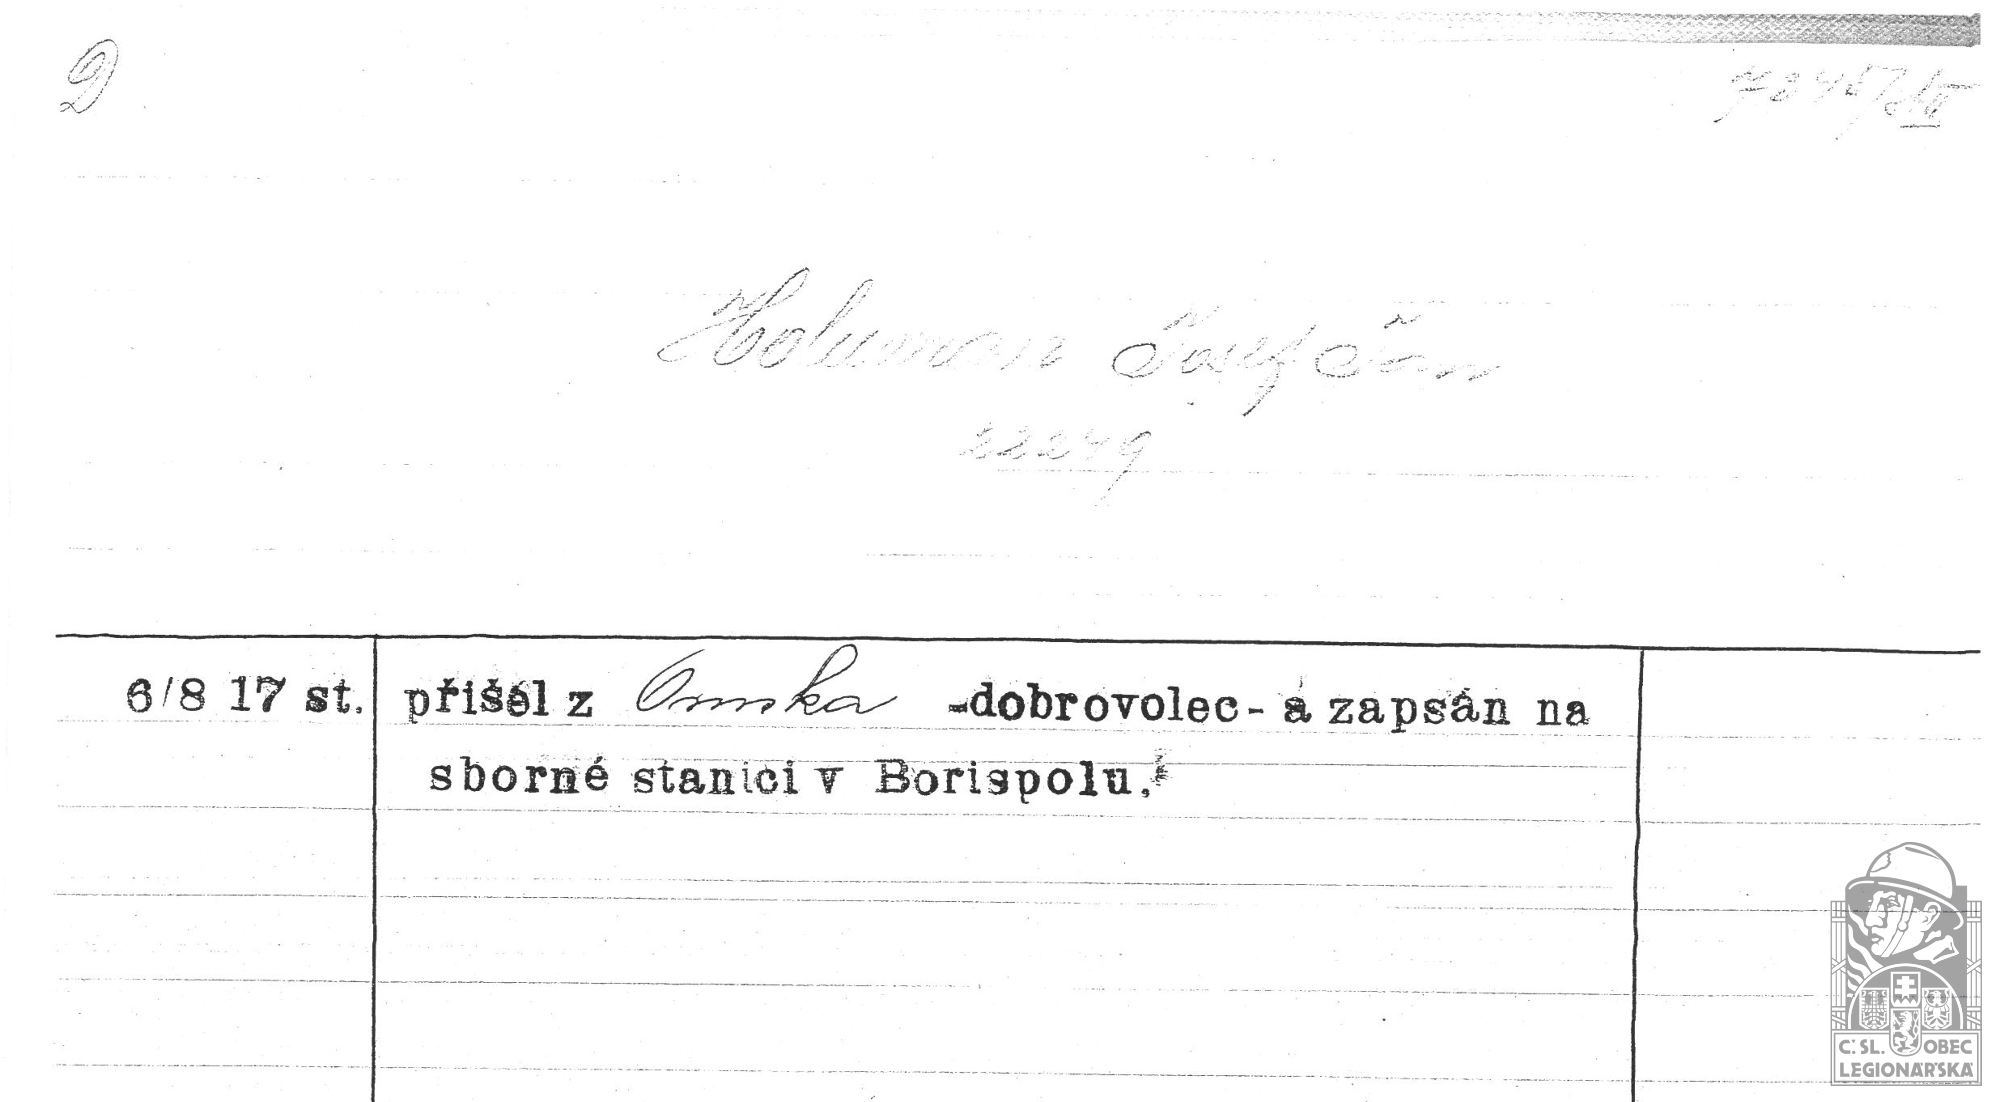 D
Holuman Josef
22249
6/8 17 st. přišel z Omska -dobrovolec- a zapsán na
sborné stanici v Borispolu.
Č. SL. OBEC
LEGIONÁŘSKÁ